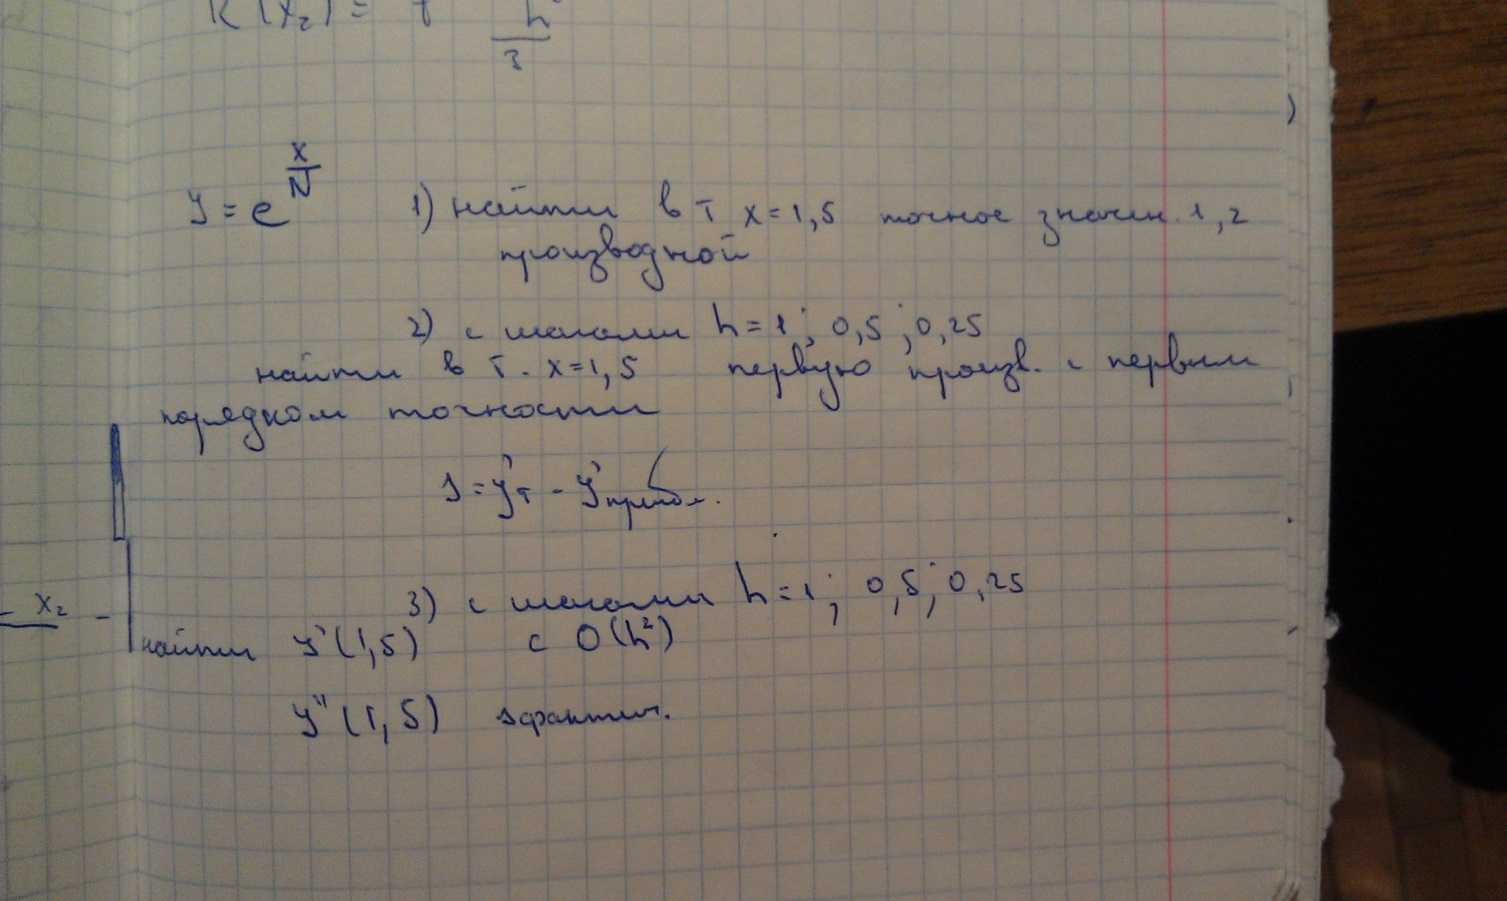 R(x₂) =
h
3
y = e^(x/N) 1) найти в т x=1,5 точное значен. 1, 2
производной
2) с шагами h=1; 0,5; 0,25
найти в т. x=1,5 первую произв. с первым
порядком точности
= y'т - y'прибл.
3) с шагами h=1; 0,5; 0,25
x₂ -
найти y'(1,5) с O(h²)
y''(1,5)